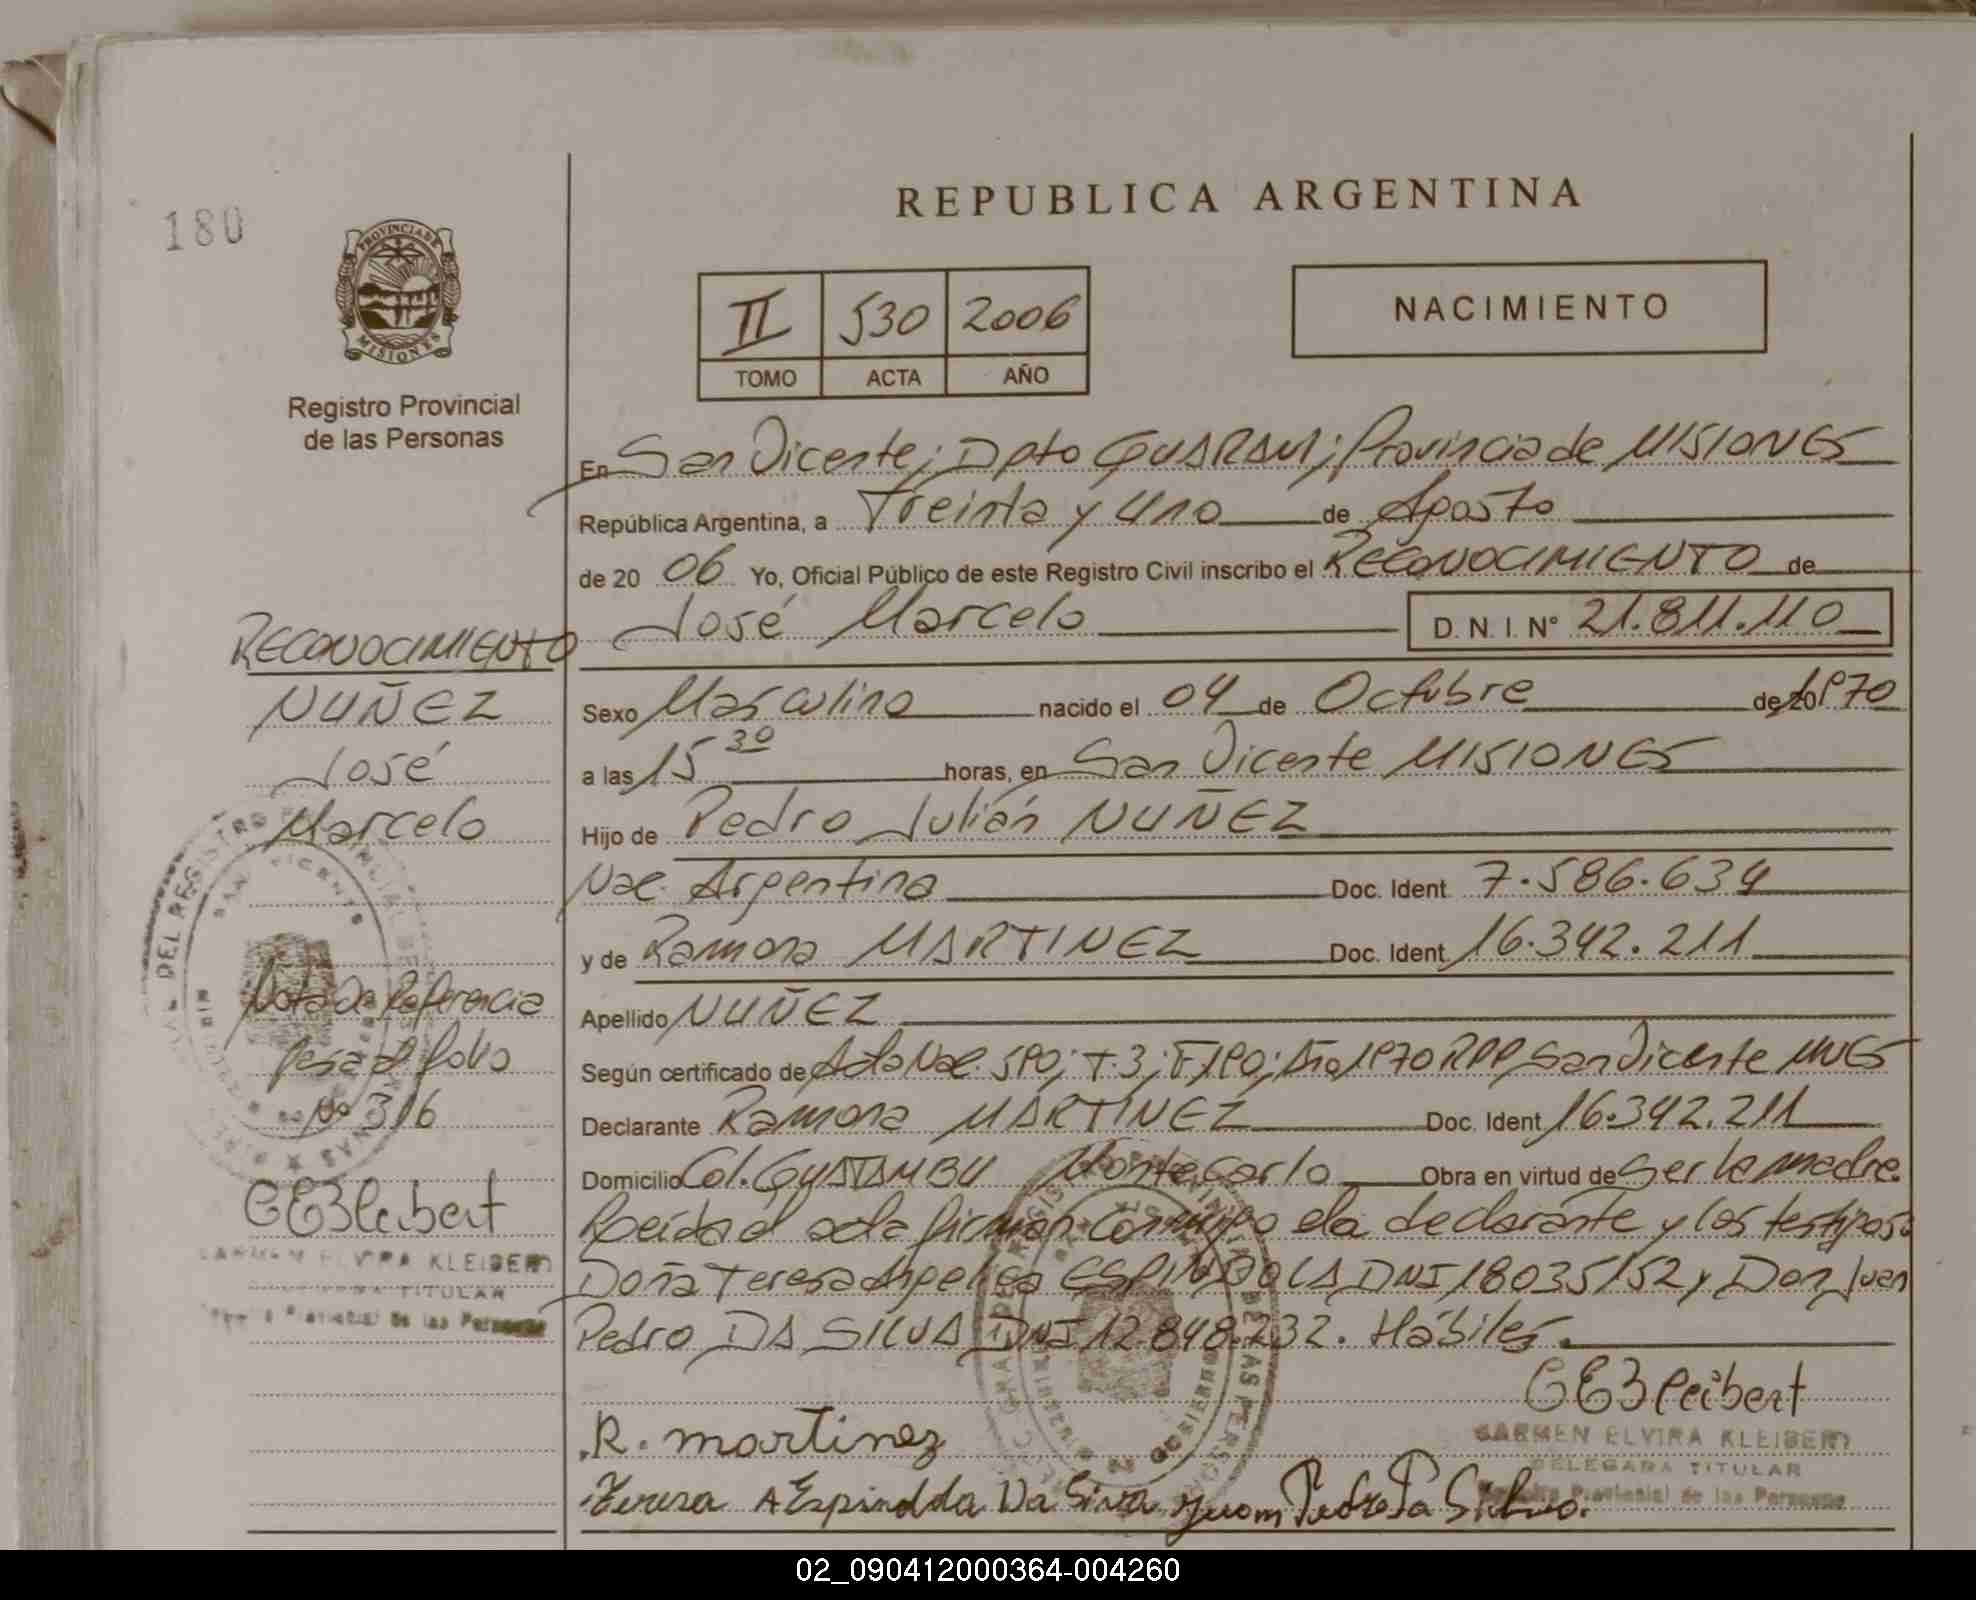 180
REPUBLICA ARGENTINA
PROVINCIA DE
MISIONES
Registro Provincial
de las Personas
II 530 2006
TOMO ACTA AÑO
NACIMIENTO
En San Vicente; Dpto GUARANI; Provincia de MISIONES
República Argentina, a Treinta y Uno de Agosto
de 20 06 Yo, Oficial Público de este Registro Civil inscribo el RECONOCIMIENTO de
José Marcelo D. N. I. N° 21.811.110
RECONOCIMIENTO
NUÑEZ
José
Marcelo
Sexo Masculino nacido el 04 de Octubre de 1970
a las 15 30 horas, en San Vicente MISIONES
Hijo de Pedro Julián NUÑEZ
Nac. Argentina Doc. Ident. 7.586.634
y de Ramona MARTINEZ Doc. Ident. 16.342.211
Apellido NUÑEZ
Según certificado de Acta Nac. 590; T.3; F190; Año 1970 RPP San Vicente MNES
Declarante Ramona MARTINEZ Doc. Ident 16.342.211
Domicilio Col. GUATAMBU Monte Carlo Obra en virtud de ser la madre.
Leída el acta firman conmigo la declarante y los testigos:
Doña Teresa Angelica ESPINDOLA DNI 18035152 y Don Juan
Pedro DA SILVA DNI 12.848.232. Hábiles.
Nota de Referencia
Pasa al folio
Nº 316
CEKleibert
CARMEN ELVIRA KLEIBERT
TITULAR
Provincial de las Personas
CEKleibert
CARMEN ELVIRA KLEIBERT
DELEGADA TITULAR
Registro Provincial de las Personas
R. martinez
Teresa A Espindola Da Silva Juan Pedro Da Silva.
02_090412000364-004260